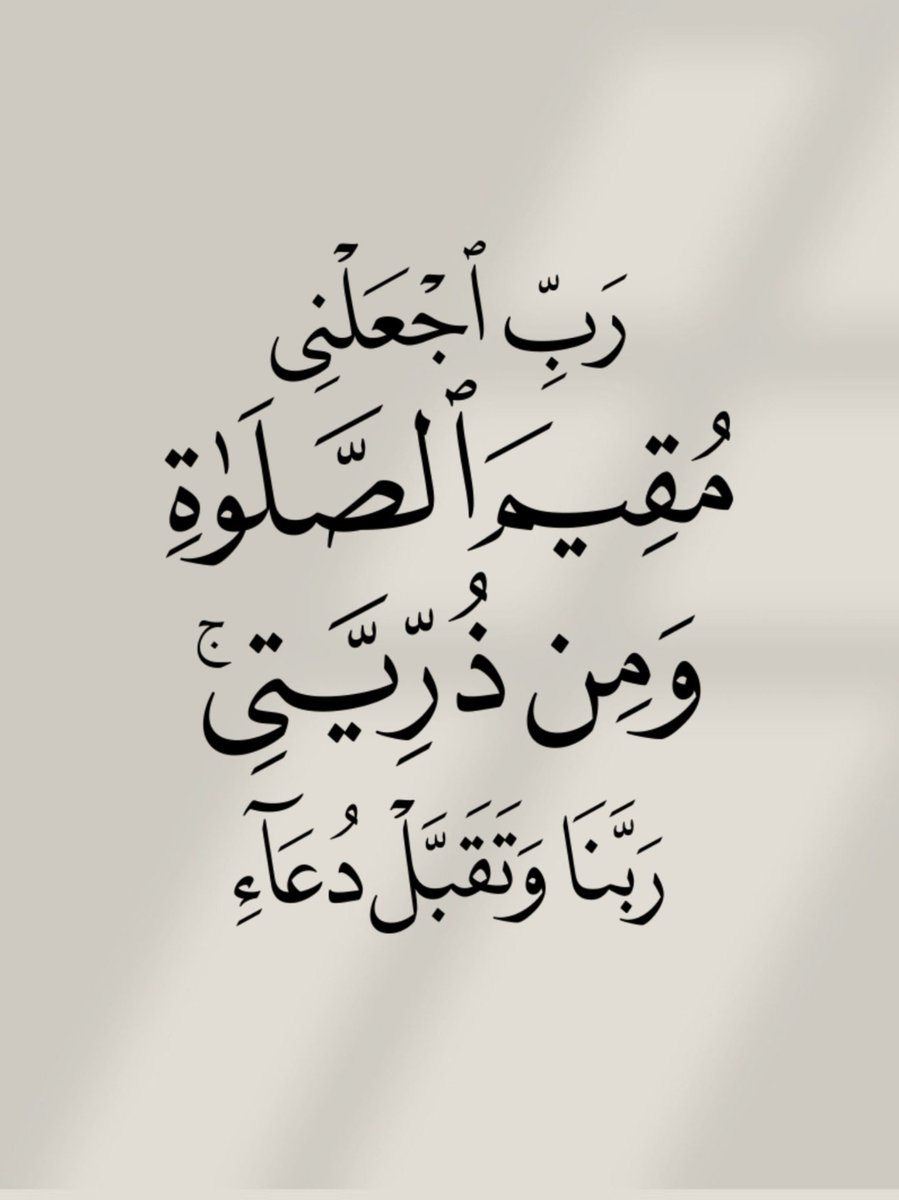 رَبِّ ٱجْعَلْنِى
مُقِيمَ ٱلصَّلَوٰةِ
وَمِن ذُرِّيَّتِى ۚ
رَبَّنَا وَتَقَبَّلْ دُعَآءِ